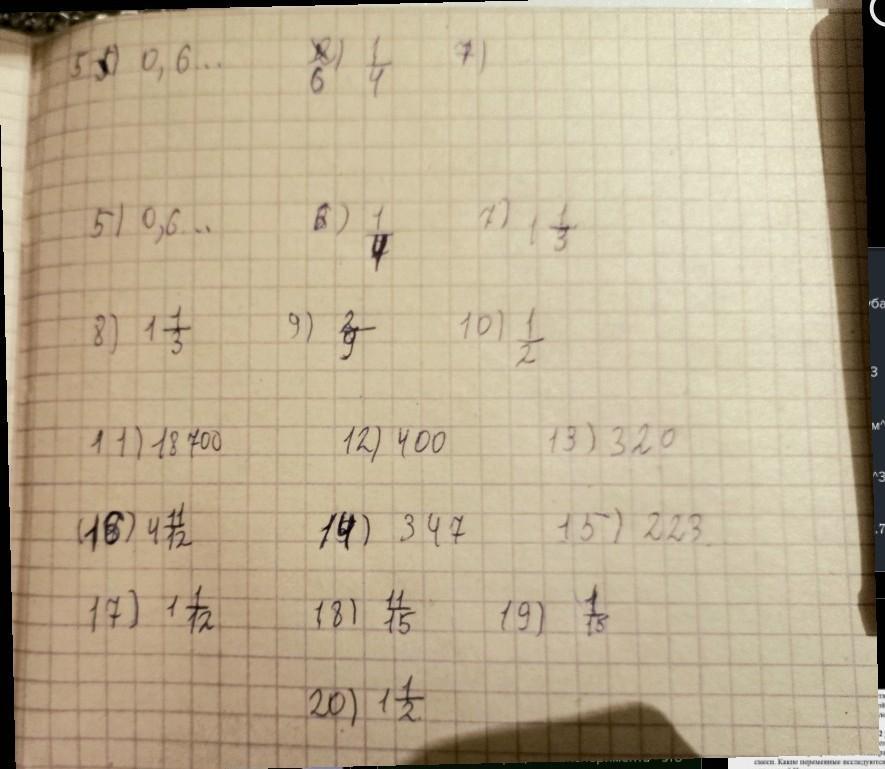 5) 0,6... 6) 1/4 7)
5) 0,6... 6) 1/4 7) 1 1/3
8) 1 1/3 9) 2/9 10) 1/2
11) 18700 12) 400 13) 320
16) 4 11/12 14) 347 15) 223
17) 1 1/12 18) 11/15 19) 1/15
20) 1 1/2
смеси. Какие переменные исследуются